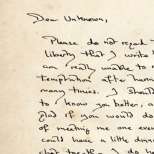 Dear Unknown,
Please do not regard
liberty that I write
am really unable to
temptation after having
many times. I should
to know you better, a
glad if you would do
of meeting me one eve
could have a little dinner
chat together. I do ho